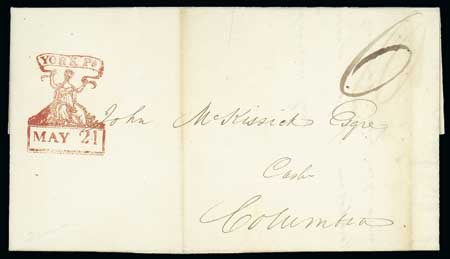 YORK Pa
MAY 21
6
John McKissick Esqre
Cash
Columbia